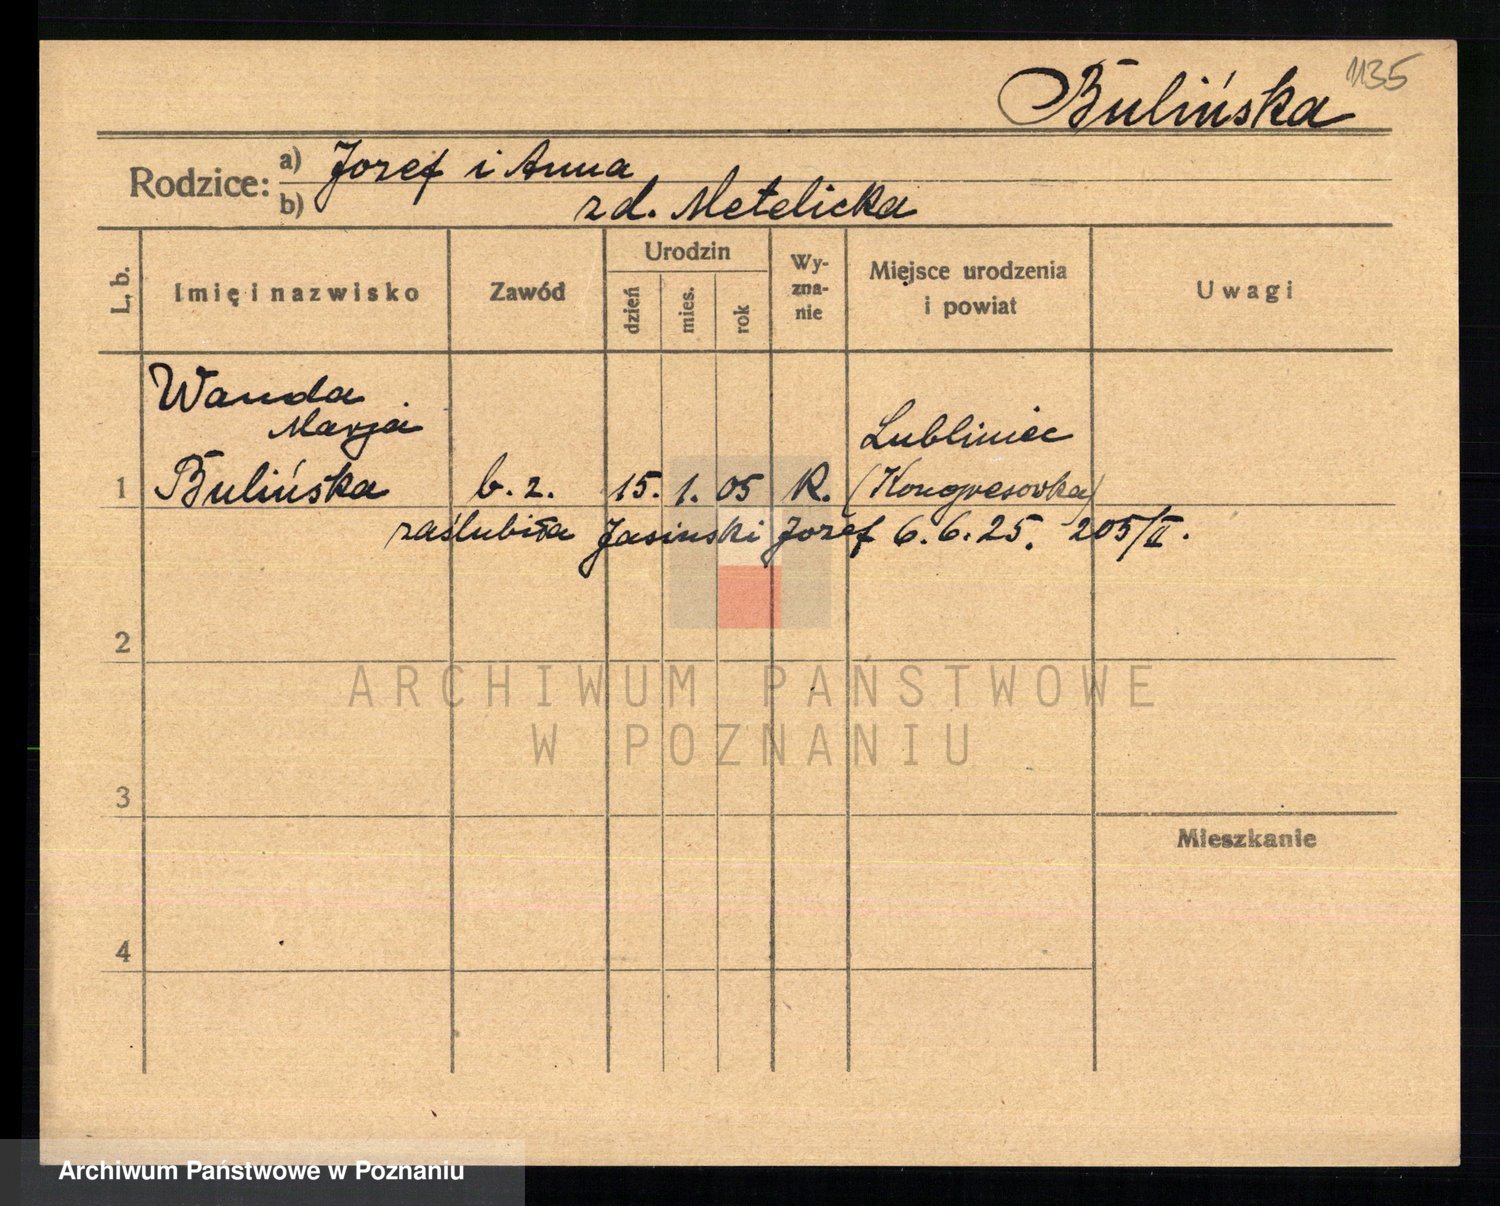 1135
Bulińska
Rodzice: a) Jozef i Anna
b) zd. Metelicka
L. b.
Imię i nazwisko
Zawód
Urodzin
dzień
mies.
rok
Wy-
zna-
nie
Miejsce urodzenia
i powiat
Uwagi
Wanda
Marja
Lubliniec
1 Bulińska b. z. 15. 1. 05 R. (Kongresovka)
zaślubiła Jasinski Jozef 6. 6. 25. 205/II.
2
ARCHIWUM PAŃSTWOWE
W POZNANIU
3
Mieszkanie
4
Archiwum Państwowe w Poznaniu